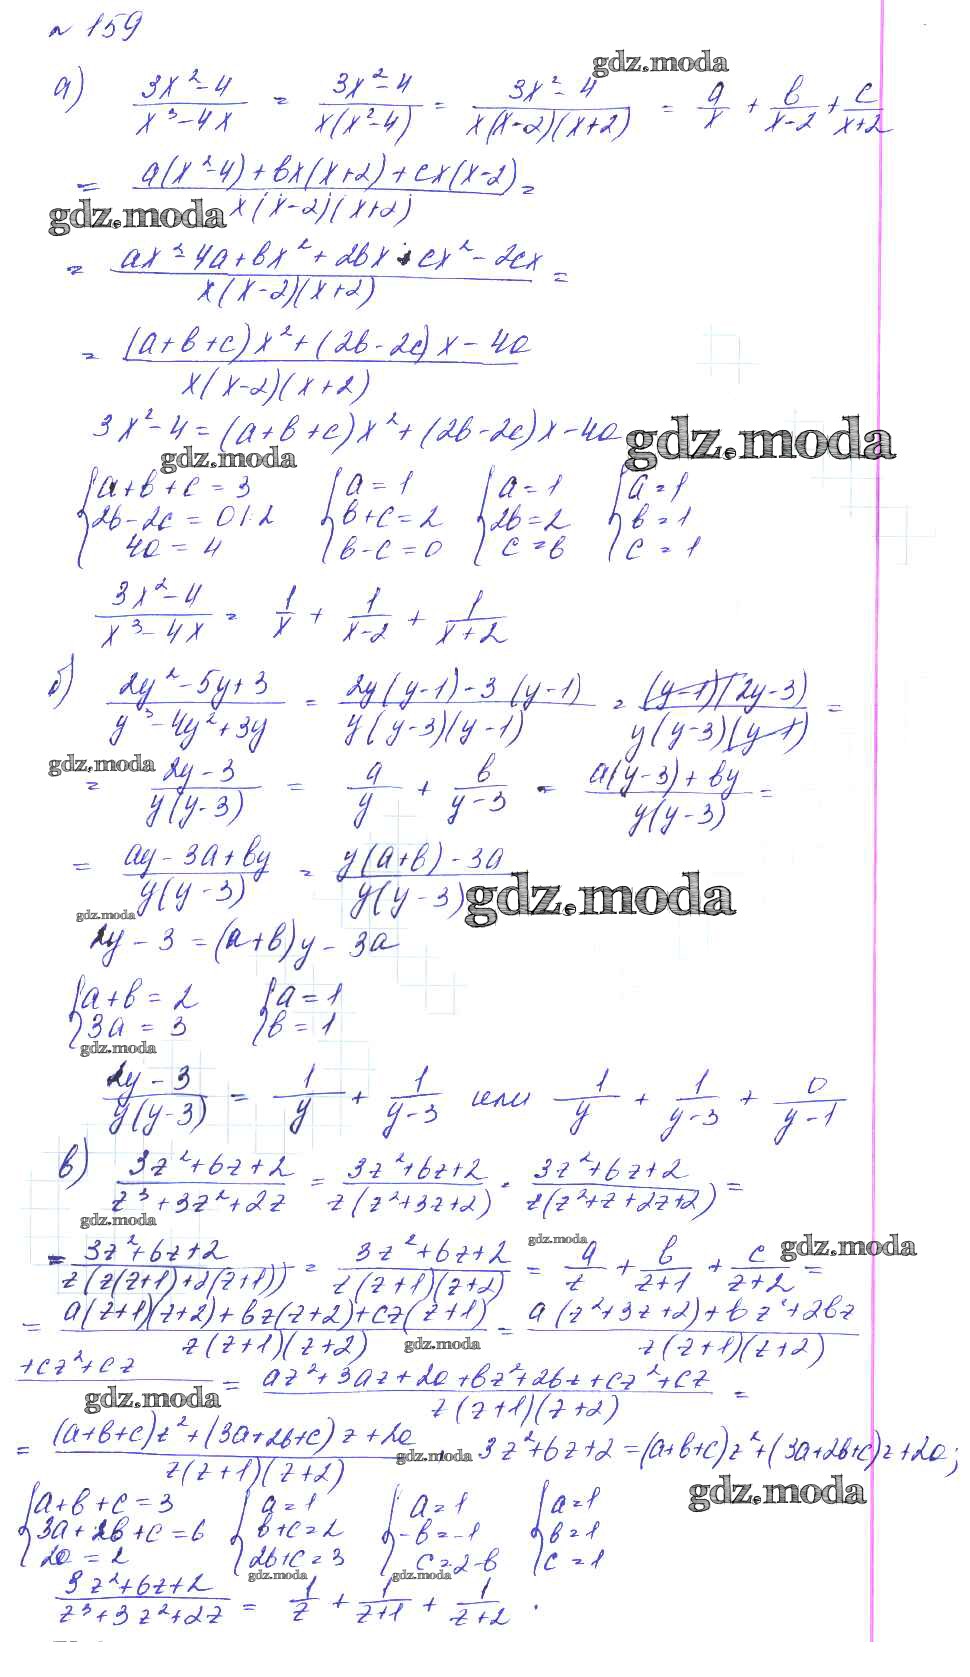 № 159
а) (3x²-4)/(x³-4x) = (3x²-4)/(x(x²-4)) = (3x²-4)/(x(x-2)(x+2)) = a/x + b/(x-2) + c/(x+2)
gdz.moda
= (a(x²-4)+bx(x+2)+cx(x-2))/(x(x-2)(x+2)) =
gdz.moda
= (ax²-4a+bx²+2bx+cx²-2cx)/(x(x-2)(x+2)) =
= ((a+b+c)x²+(2b-2c)x-4a)/(x(x-2)(x+2))
3x²-4=(a+b+c)x²+(2b-2c)x-4a
gdz.moda
gdz.moda
{a+b+c=3 {a=1 {a=1 {a=1
2b-2c=0|:2 b+c=2 2b=2 b=1
4a=4 b-c=0 c=b c=1
(3x²-4)/(x³-4x) = 1/x + 1/(x-2) + 1/(x+2)
б) (2y²-5y+3)/(y³-4y²+3y) = (2y(y-1)-3(y-1))/(y(y-3)(y-1)) = ((y-1)(2y-3))/(y(y-3)(y-1)) =
gdz.moda
= (2y-3)/(y(y-3)) = a/y + b/(y-3) = (a(y-3)+by)/(y(y-3)) =
= (ay-3a+by)/(y(y-3)) = (y(a+b)-3a)/(y(y-3))
gdz.moda
gdz.moda
2y-3=(a+b)y-3a
{a+b=2 {a=1
3a=3 b=1
gdz.moda
(2y-3)/(y(y-3)) = 1/y + 1/(y-3) или 1/y + 1/(y-3) + 0/(y-1)
в) (3z²+6z+2)/(z³+3z²+2z) = (3z²+6z+2)/(z(z²+3z+2)) = (3z²+6z+2)/(z(z²+z+2z+2)) =
gdz.moda
gdz.moda
gdz.moda
= (3z²+6z+2)/(z(z(z+1)+2(z+1))) = (3z²+6z+2)/(z(z+1)(z+2)) = a/z + b/(z+1) + c/(z+2) =
= (a(z+1)(z+2)+bz(z+2)+cz(z+1))/(z(z+1)(z+2)) = (a(z²+3z+2)+bz²+2bz/(z(z+1)(z+2))
gdz.moda
+cz²+cz = (az²+3az+2a+bz²+2bz+cz²+cz)/(z(z+1)(z+2)) =
gdz.moda
= ((a+b+c)z²+(3a+2b+c)z+2a)/(z(z+1)(z+2)) . 3z²+6z+2=(a+b+c)z²+(3a+2b+c)z+2a;
gdz.moda
gdz.moda
{a+b+c=3 {a=1 {a=1 {a=1
3a+2b+c=6 b+c=2 -b=-1 b=1
2a=2 2b+c=3 c=2-b c=1
gdz.moda
gdz.moda
(3z²+6z+2)/(z³+3z²+2z) = 1/z + 1/(z+1) + 1/(z+2) .